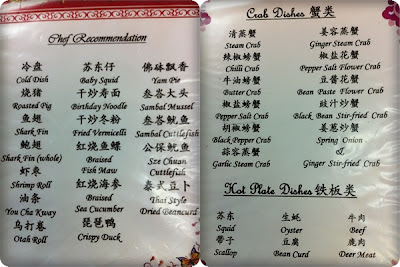 Chef Recommendation
冷盘
Cold Dish
烧猪
Roasted Pig
鱼翅
Shark Fin
鲍翅
Shark Fin (whole)
虾枣
Shrimp Roll
油条
You Cha Kway
乌打卷
Otah Roll
苏东仔
Baby Squid
干炒寿面
Birthday Noodle
干炒冬粉
Fried Vermicelli
红烧鱼鳔
Braised
Fish Maw
红烧海参
Braised
Sea Cucumber
琵琶鸭
Crispy Duck
佛砵飘香
Yam Pie
叁峇大头
Sambal Mussel
叁峇鱿鱼
Sambal Cuttlefish
公保鱿鱼
Sze Chuan
Cuttlefish
泰式豆卜
Thai Style
Dried Beancurd
Crab Dishes 蟹类
清蒸蟹
Steam Crab
辣椒螃蟹
Chilli Crab
牛油螃蟹
Butter Crab
椒盐螃蟹
Pepper Salt Crab
胡椒螃蟹
Black Pepper Crab
蒜容蒸蟹
Garlic Steam Crab
姜容蒸蟹
Ginger Steam Crab
椒盐花蟹
Pepper Salt Flower Crab
豆酱花蟹
Bean Paste Flower Crab
豉汁炒蟹
Black Bean Stir-fried Crab
姜葱炒蟹
Spring Onion
&
Ginger Stir-fried Crab
Hot Plate Dishes 铁板类
苏东
Squid
生蚝
Oyster
牛肉
Beef
带子
Scallop
豆腐
Bean Curd
鹿肉
Deer Meat